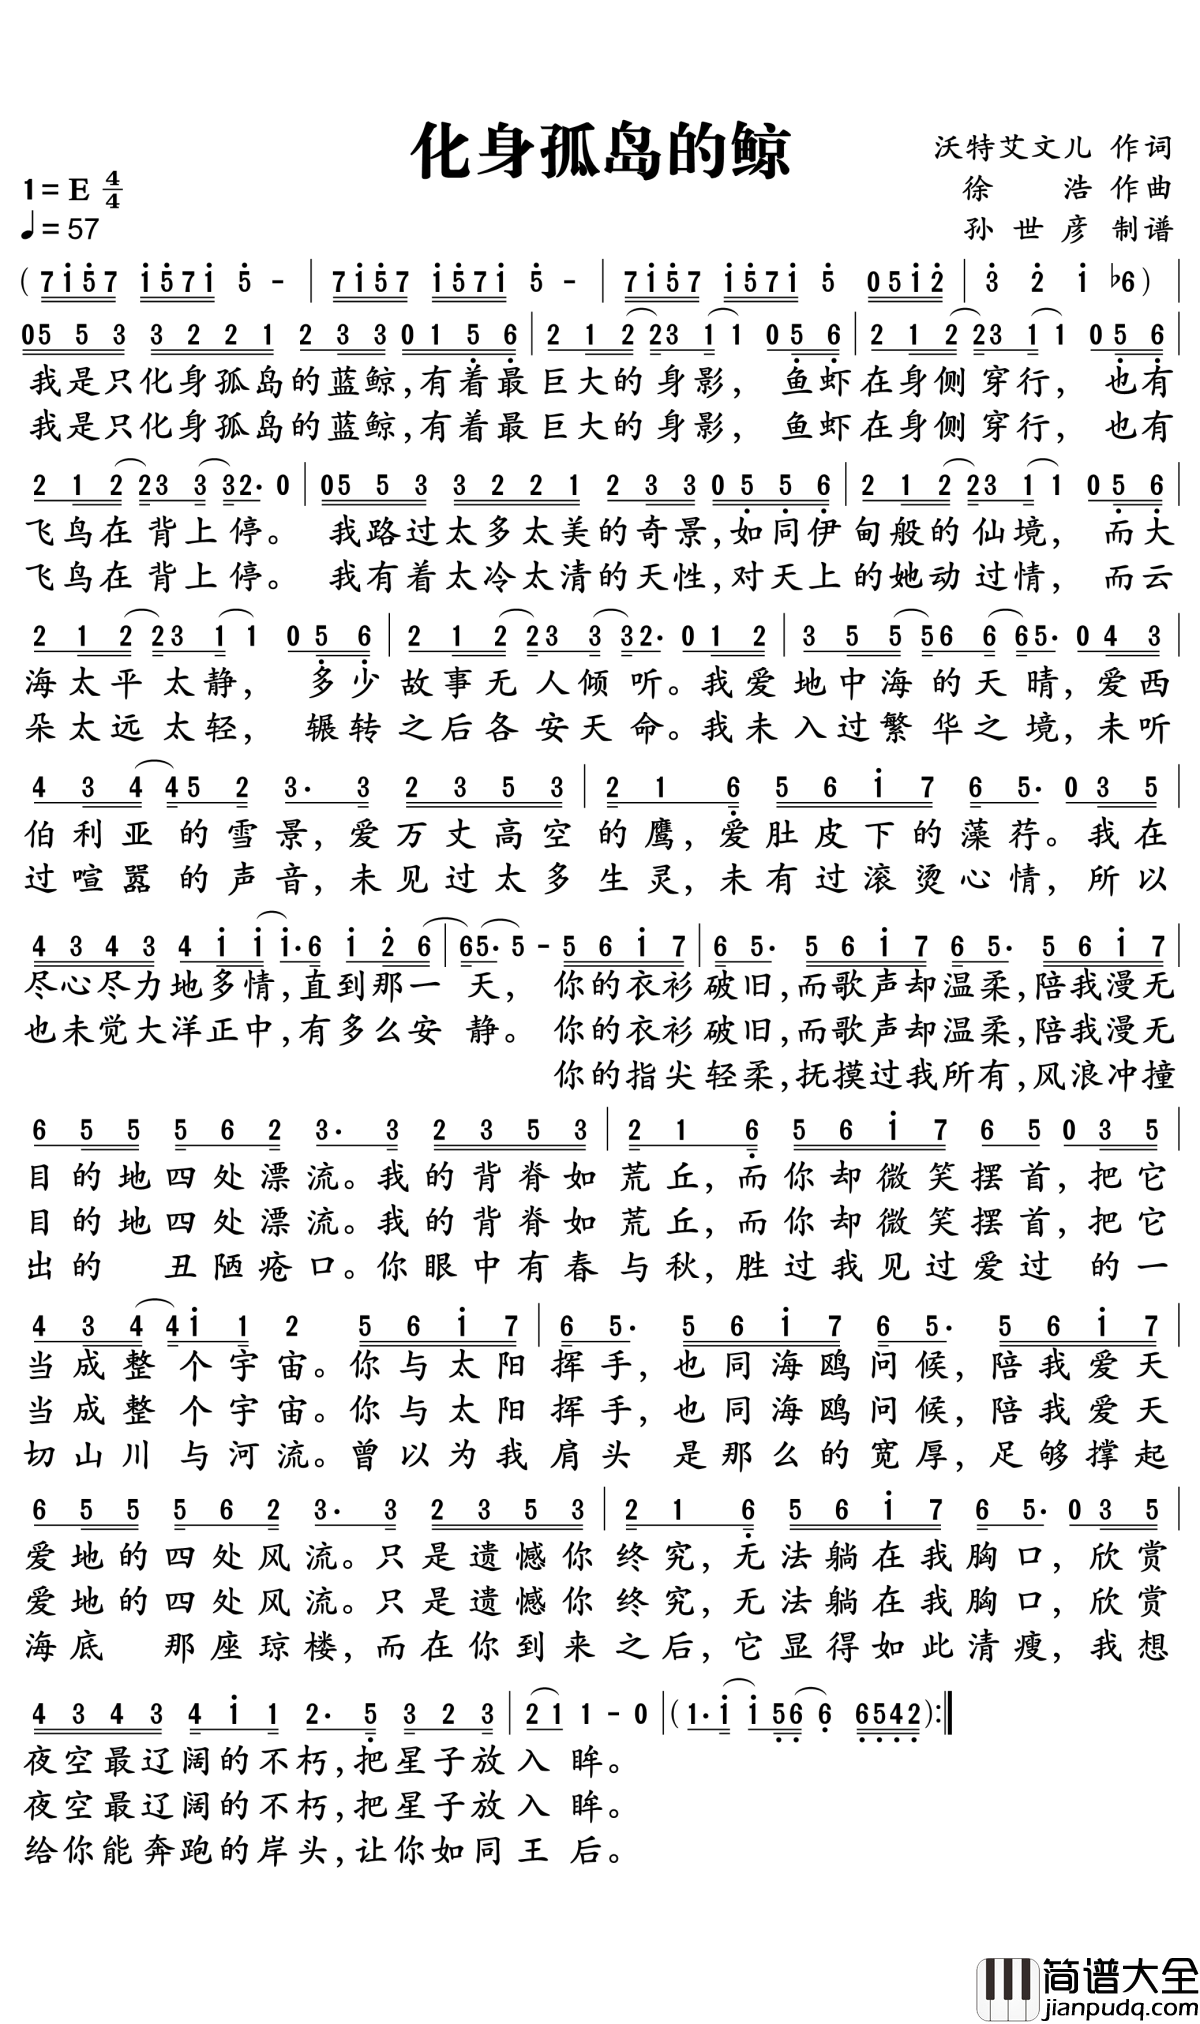 化身孤岛的鲸
沃特艾文儿 作词
1=E 4/4
徐 浩 作曲
♩=57
孙世彦 制谱
(7i57 i57i 5 - | 7i57 i57i 5 - | 7i57 i57i 5 05i2 | 3 2 i ♭6)
0553 3221 233 0156 | 212 23 1 1 056 | 212 23 1 1 056 |
我是只化身孤岛的蓝鲸,有着最巨大的身影, 鱼虾在身侧穿行, 也有
我是只化身孤岛的蓝鲸,有着最巨大的身影, 鱼虾在身侧穿行, 也有
212 23 3 32. 0 | 0553 3221 233 0556 | 212 23 1 1 056 |
飞鸟在背上停。 我路过太多太美的奇景,如同伊甸般的仙境, 而大
飞鸟在背上停。 我有着太冷太清的天性,对天上的她动过情, 而云
212 23 1 1 056 | 212 23 3 32. 012 | 355 56 6 65. 043 |
海太平太静, 多少故事无人倾听。我爱地中海的天晴,爱西
朵太远太轻, 辗转之后各安天命。我未入过繁华之境,未听
434 45 2 3. 3 2353 | 21 6 56i7 65. 035 |
伯利亚的雪景,爱万丈高空的鹰,爱肚皮下的藻荇。我在
过喧嚣的声音,未见过太多生灵,未有过滚烫心情,所以
4343 4ii i.6 i26 | 65. 5 - 56i7 | 65. 56i7 65. 56i7 |
尽心尽力地多情,直到那一天, 你的衣衫破旧,而歌声却温柔,陪我漫无
也未觉大洋正中,有多么安静。 你的衣衫破旧,而歌声却温柔,陪我漫无
你的指尖轻柔,抚摸过我所有,风浪冲撞
655 562 3. 3 2353 | 21 6 56i7 65 035 |
目的地四处漂流。我的背脊如荒丘,而你却微笑摆首,把它
目的地四处漂流。我的背脊如荒丘,而你却微笑摆首,把它
出的 丑陋疮口。你眼中有春与秋,胜过我见过爱过的一
434 4i 1 2 56i7 | 65. 56i7 65. 56i7 |
当成整个宇宙。你与太阳挥手,也同海鸥问候,陪我爱天
当成整个宇宙。你与太阳挥手,也同海鸥问候,陪我爱天
切山川与河流。曾以为我肩头 是那么的宽厚,足够撑起
655 562 3. 3 2353 | 21 6 56i7 65. 035 |
爱地的四处风流。只是遗憾你终究,无法躺在我胸口,欣赏
爱地的四处风流。只是遗憾你终究,无法躺在我胸口,欣赏
海底 那座琼楼,而在你到来之后,它显得如此清瘦,我想
4343 4i1 2.5 323 | 21 1 - 0 | (1.i i 56 6 6542):|
夜空最辽阔的不朽,把星子放入眸。
夜空最辽阔的不朽,把星子放入眸。
给你能奔跑的岸头,让你如同王后。
简谱大全
jianpudq.com